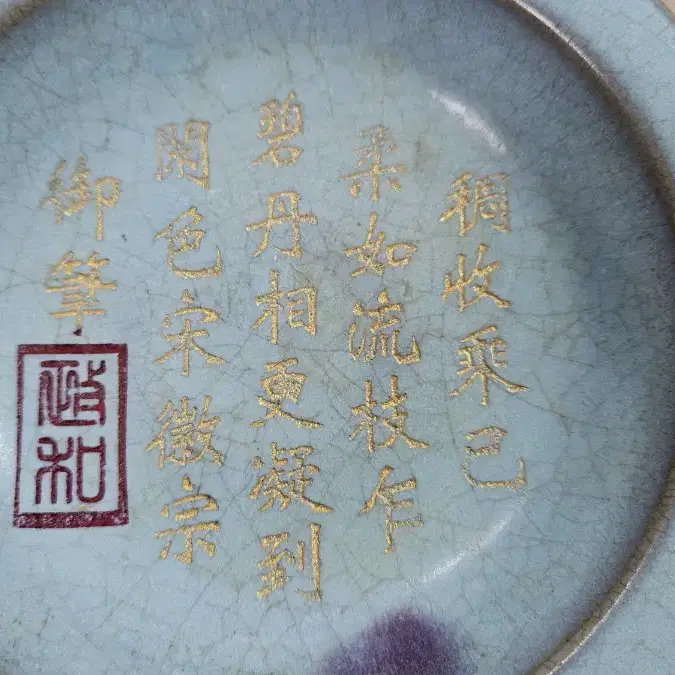 稠收乘己
柔如流枝乍
碧丹相更凝到
閑色宋徽宗
御筆
政和